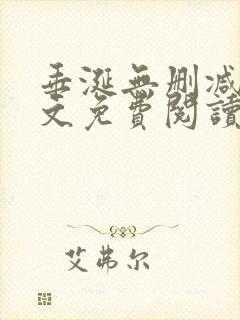 垂涎無刪減
文免費閱讀
艾弗尔